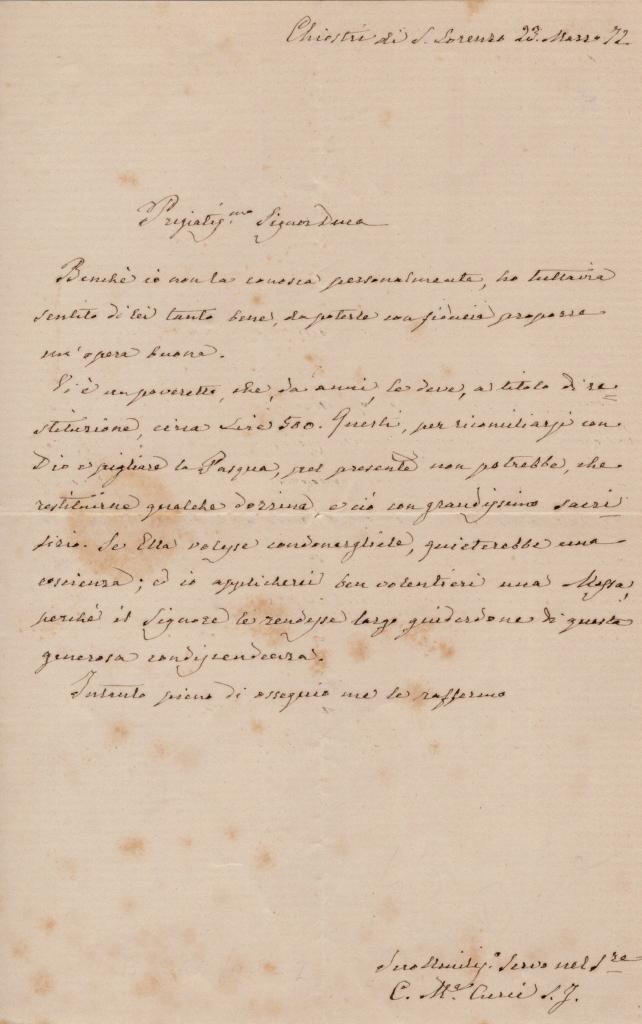 Chiostri di S. Lorenzo 23. Marzo 72
Pregiatiss.mo Signor Duca
Benchè io non la conosca personalmente, ho tuttavia
sentito di Lei tanto bene, da poterle con fiducia proporre
un' opera buona.
Vi è un poveretto, che, da anni, le deve, a titolo di re=
stituzione, circa Lire 500. Questi, per riconciliarsi con
Dio e pigliare la Pasqua, pel presente non potrebbe, che
restituirne qualche dozzina, e ciò con grandissimo sacri=
fizio. Se Ella volesse condonargliele, quieterebbe una
coscienza; ed io applicherei ben volentieri una Messa,
perchè il Signore le rendesse largo guiderdone di questa
generosa condiscendenza.
Intanto pieno di ossequio me le raffermo
Suo Umiliss.o Servo nel S.re
C. M.a Curci S.J.